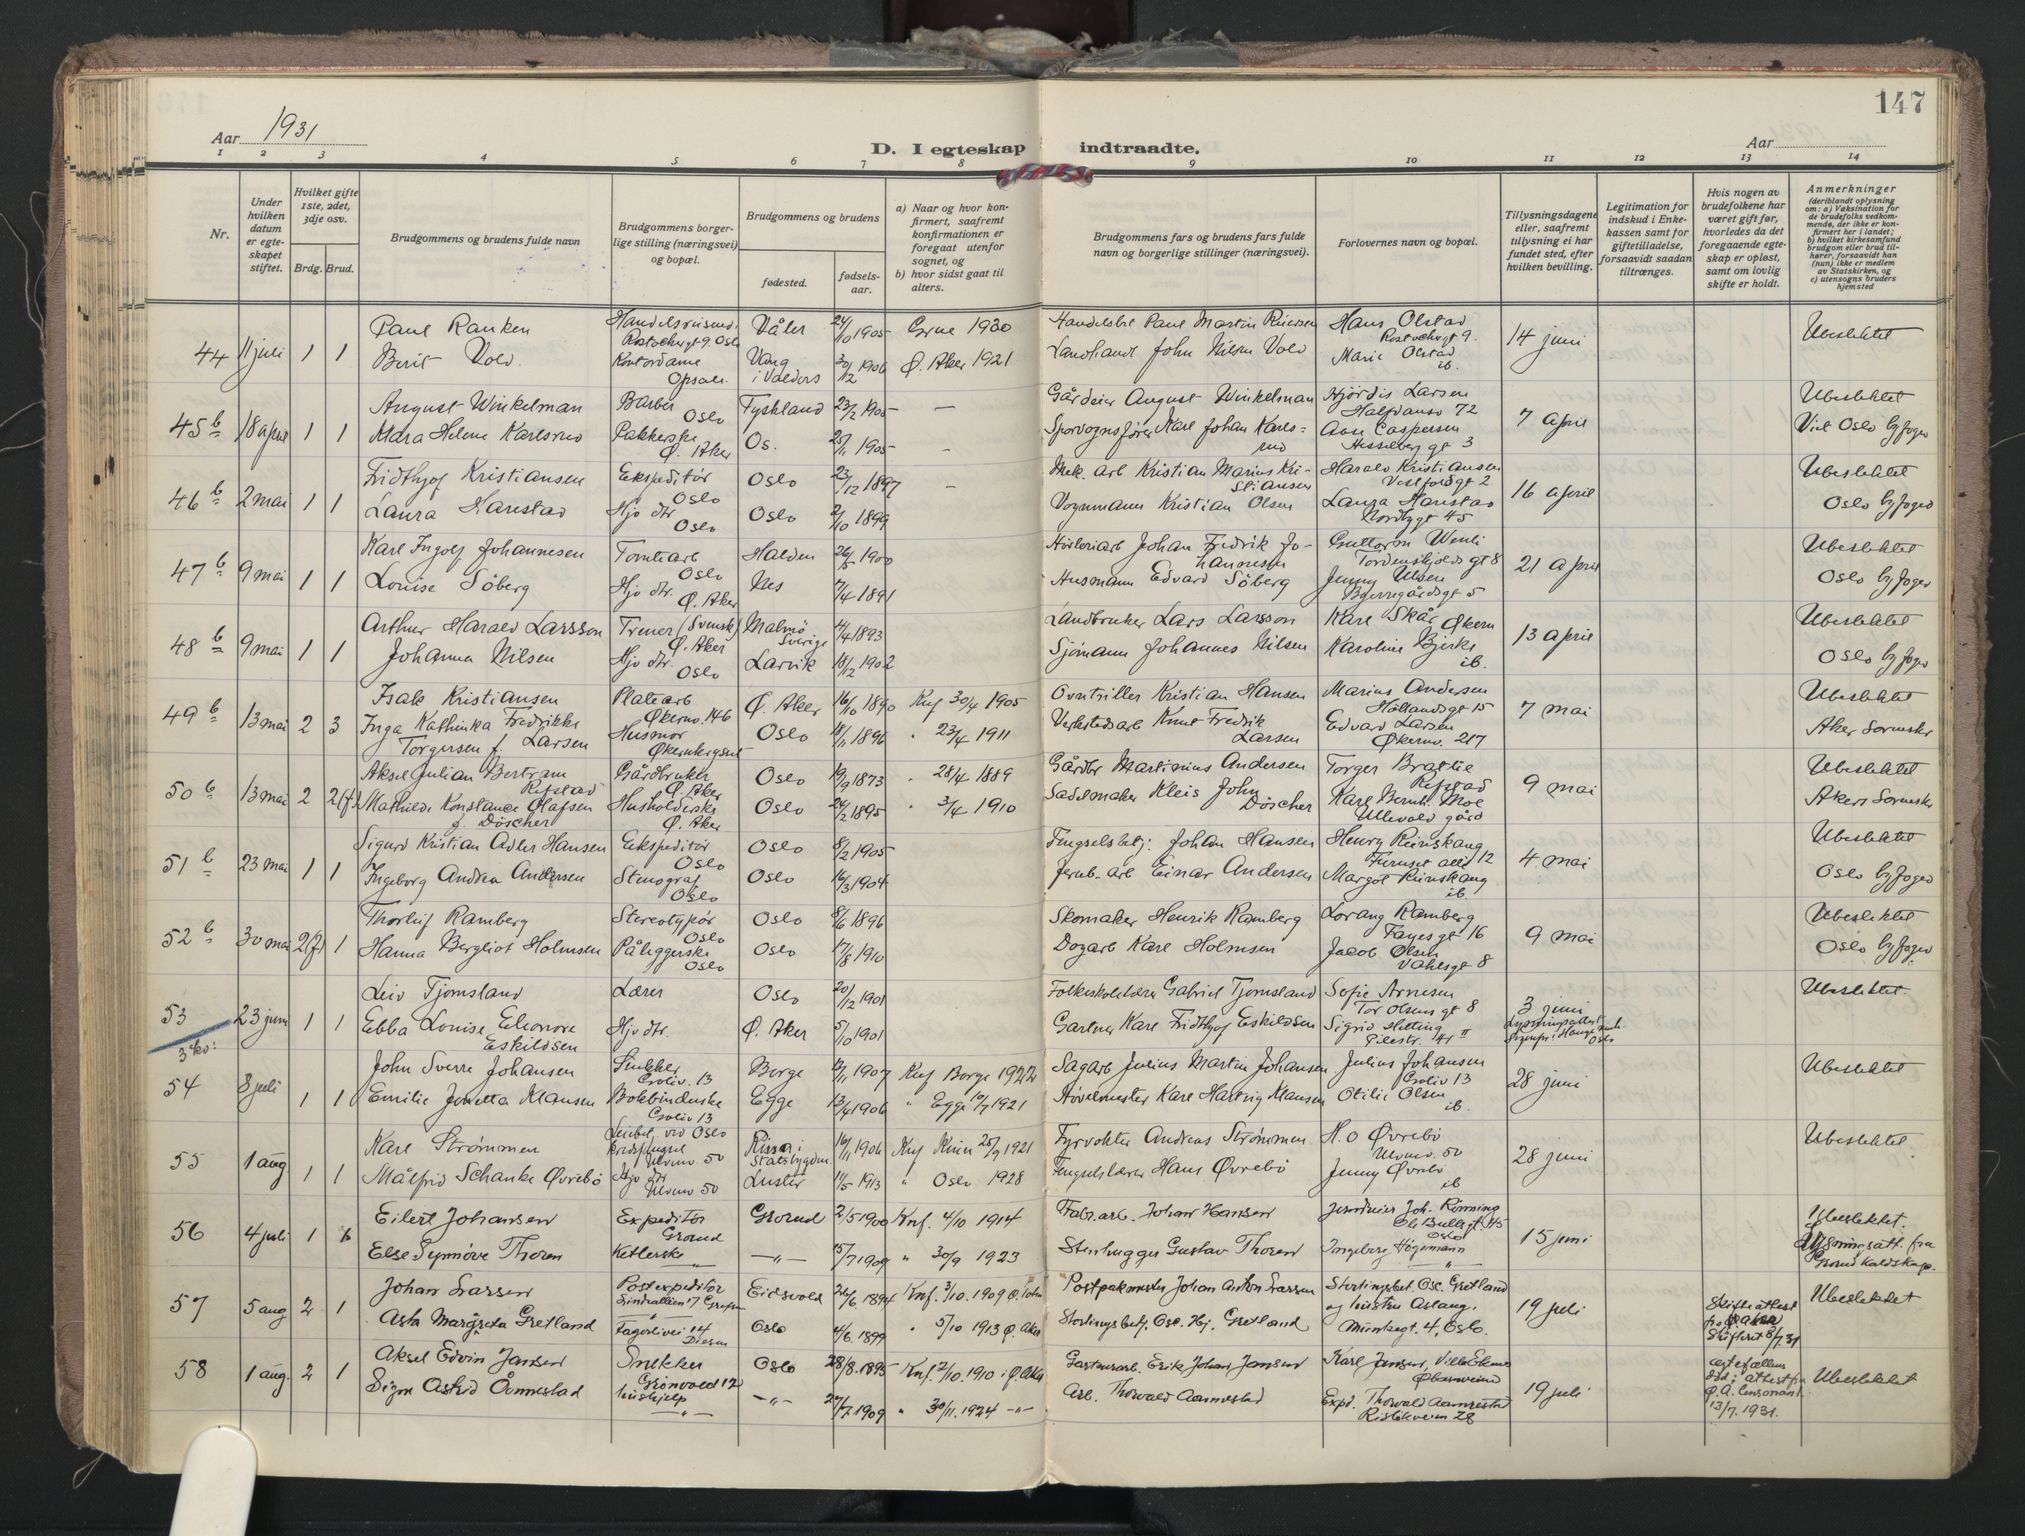 147
Aar 1931
D. I egteskap indtraadte.
Aar
1 2 3 4 5 6 7 8 9 10 11 12 13 14
Nr.
Under hvilken datum er egteskapet stiftet.
Hvilket gifte 1ste, 2det, 3dje osv.
Brdg. Brud.
Brudgommens og brudens fulde navn
Brudgommens borgerlige stilling (næringsvei) og bopæl.
Brudgommens og brudens
fødested.
fødselsaar.
a) Naar og hvor konfirmert, saafremt konfirmationen er foregaat utenfor sognet, og
b) hvor sidst gaat til alters.
Brudgommens fars og brudens fars fulde navn og borgerlige stillinger (næringsvei).
Forlovernes navn og bopæl.
Tillysningsdagene eller, saafremt tillysning ei har fundet sted, efter hvilken bevilling.
Legitimation for indskud i Enkekassen samt for giftetilladelse, forsaavidt saadan tiltrænges.
Hvis nogen av brudefolkene har været gift før, hvorledes da det foregaaende egteskap er opløst, samt om lovlig skifte er holdt.
Anmerkninger
(deriblandt oplysning om: a) Vaksination for de brudefolks vedkommende, der ikke er konfirmert her i landet;
b) hvilket kirkesamfund brudgom eller brud tilhører, forsaavidt han (hun) ikke er medlem av Statskirken, og
c) utensogns bruders hjemsted
44 11 juli 1 1 Paul Ranken Våler 24/10 1905 Grue 1930 Hans Olstad 14 juni Ubeslektet
Berit Vold. Kontordame Opsal. Vang i Valders 1906 Ø. Aker 1921 Landhandl John Nilsen Vold Marie Olstad ib.
45 b 18 april 1 1 August Winkelman Barber Oslo Tyskland 23/2 1905 — Gårdeier August Winkelman Hjördis Larsen Halfdansv 72 7 april Ubeslektet
Mara Helene Karlsrud Pakkerske Ø. Aker Os. 25/11 1905 - Sporvognsfører Karl Johan Karlsrud Aase Caspersen Hesselberg gt 3 Oslo byfoged
46 b 2 mai 1 1 Fridthjof Kristiansen Ekspeditör Oslo Oslo 23/12 1897 — Mek. arb Kristian Marius Kristiansen Harald Kristiansen Vestfoldgt 2 16 april Ubeslektet
Laura Harestad Hjv dtr Oslo Oslo 2/10 1899 Vognmann Kristian Olsen Laura Harestad Nordbygt 45 Oslo byfoged
47 b 9 mai 1 1 Karl Ingolf Johannesen Tomtearb Oslo Halden 26/5 1900 Johan Fredrik Johannesen Guttorm Wenli Tordenskjolds gt 8 21 april Ubeslektet
Louise Söberg Hjv dtr. Ø. Aker Nes 7/4 1891 Husmann Edvard Söberg Jenny Olsen Bjerregårdsgt 5 Oslo byfoged
48 b 9 mai 1 1 Arthur Harald Larsson Trener (Svensk) Ø. Aker Malmö Sverige 4/4 1893 Landbruker Lars Larsson Karl Skår Økern 13 april Ubeslektet
Johanna Nilsen Hjv dtr. Oslo Larvik 18/12 1902 Sjömann Johannes Nilsen Karoline Bjerke ib. Oslo byfoged
49 b 13 mai 2 3 Isak Kristiansen Platearb Økernv. 146 Ø. Aker 16/10 1890 Knf 30/4 1905 Kristian Hansen Marius Andersen Hollandsgt 15 7 mai Ubeslektet
Inga Kathinka Fredrikke Torgersen f. Larsen Husmor Oslo 18/11 1896 " 23/4 1911 Verkstedsarb Knut Fredrik Larsen Edvard Larsen Økernv. 217 Aker Sorenskr
50 b 13 mai 2 2(f) Aksel Julian Bertram Refstad Gårdbruker Ø. Aker Oslo 19/9 1873 " 28/4 1889 Gårdbr Martinius Andersen Torger Brattlie Refstad 9 mai Ubeslektet
Mathilde Konstance Olafsen f. Döscher Husholderske Ø. Aker Oslo 24/2 1895 " 3/4 1910 Sadelmaker Kleis John Döscher Karl Bernh. Moe Ullevold gård Akers Sorenskr
51 b 23 mai 1 1 Sigurd Kristian Adler Hansen Ekspeditör Oslo Oslo 8/2 1905 Fengselsbetj: Johan Hansen Henry Reinskaug Furuset alle 12 4 mai Ubeslektet
Ingeborg Andrea Andersen Stenograf Oslo Oslo 16/3 1904 Jernb. arb Einar Andersen Margot Reinskaug ib. Oslo byfoged
52 b 30 mai 2(f) 1 Thorleif Ramberg Stereotypör Oslo Oslo 8/6 1896 Skomaker Henrik Ramberg Lorang Ramberg Fayes gt 16 9 mai Ubeslektet
Hanna Bergliot Holmsen Påleggerske Oslo Oslo 17/8 1910 Dagarb Karl Holmsen Jacob Olsen Vahlsgt 8 Oslo byfoged
53 23 juni 1 1 Leiv Tjomsland Lærer Oslo 20/12 1901 Folkeskolelærer Gabriel Tjomsland Sofie Arnesen Tor Olsens gt 8 3 juni Ubeslektet.
Ebba Louise Eleonore Eskildsen Hjv dtr. Ø. Aker 5/10 1901 Gartner Karl Fridthjof Eskildsen Pilestr. 41
54 8 juli 1 1 John Sverre Johansen Snekker Solliv. 13 Borge 1907 Knf Borge 1922 Sagarb Julius Martin Johansen Julius Johansen Solliv 13 28 juni Ubeslektet
Emilie Jonetta Klausen Bokbinderske Solliv 13 Egge 13/4 1906 " Egge 10/7 1921 Høvelmester Karl Hartvig Klausen Otilie Olsen ib.
55 1 aug 1 1 Karl Strømmen Ulvenv. 50 Rissa i Stadsbygden 16/11 1906 Knf 25/9 1921 Fyrvokter Andreas Strømmen H. O Øvrebö Ulvenv. 50 28 juni Ubeslektet
Målfrid Schanke Øvrebö Hjv dtr Ulvenv 50 Luster 11/5 1913 " Oslo 1928 Fengselslærer Hans Øvrebö Jenny Øvrebö ib
56 4 juli 1 Eilert Johansen Expeditör Grorud Grorud 2/5 1900 Knf. 4/10 1914 Fabr. arb. Johan Hansen Joh. Rönning Ole Bullsgt. 45 Oslo 15 juni Ubeslektet.
Else Synnöve Thoren —"— 1909 " 30/9 1923 Stenhugger Gustav Thoren Ingeborg Högemann
57 5 aug 2 1 Johan Larssen Postexpeditör Eidsvold 26/6 1894 Knf. 3/10. 1909 Postpakmester Johan Anton Larssen Stortingsbet. Osc. Gretland 19 juli Skifteattest fra Ø. Aker Skifterett 8/7 31 Ubeslektet
Asta Margreta Gretland Fagerlivei 14 Oslo 4/6 1899 " 5/10 1913 Ø. Aker Stortingsbetj. Osc. Hj. Gretland Munkegt. 4, Oslo.
58 1 aug. 2 1 Aksel Edvin Jansen Snekker Grönvold 12 Oslo 28/8. 1895 Knf. 2/10. 1910 i Ø. Aker Gartnerarb. Erik Johan Jansen Karl Jansen, 19 juli Ubeslektet
Signe Astrid Åmnestad hushjelp —"— —"— 1909 " 30/11. 1924 —"— Arb. Thorvald Aamnestad Exped. Thorvald Aamnestad 13/7. 1931.